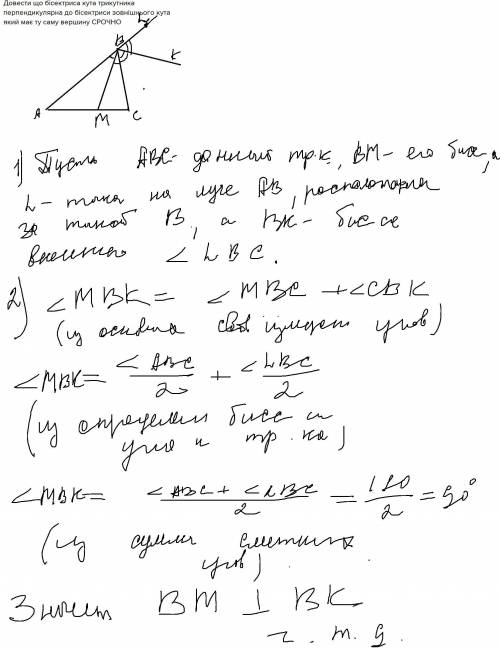 Довести що бісектриса кута трикутника
перпендикулярна до бісектриси зовнішнього кута
який має ту саму вершину СРОЧНО
L
B
K
A
M
C
1) Пусть ABC - данный тр.к, BM - его бисс, а
L - точка на луче AB, расположен
за точкой B, а BK - биссе
внешнего ∠ LBC.
2) ∠MBK = ∠MBC + ∠CBK
(из основна свой измерен углов)
∠MBK = ∠ABC/2 + ∠LBC/2
(из определен бисс и
угла и тр.ка)
∠MBK = (∠ABC + ∠LBC)/2 = 180/2 = 90°
(из сумми смежних
углов)
Значит BM ⊥ BK
ч. т. д.